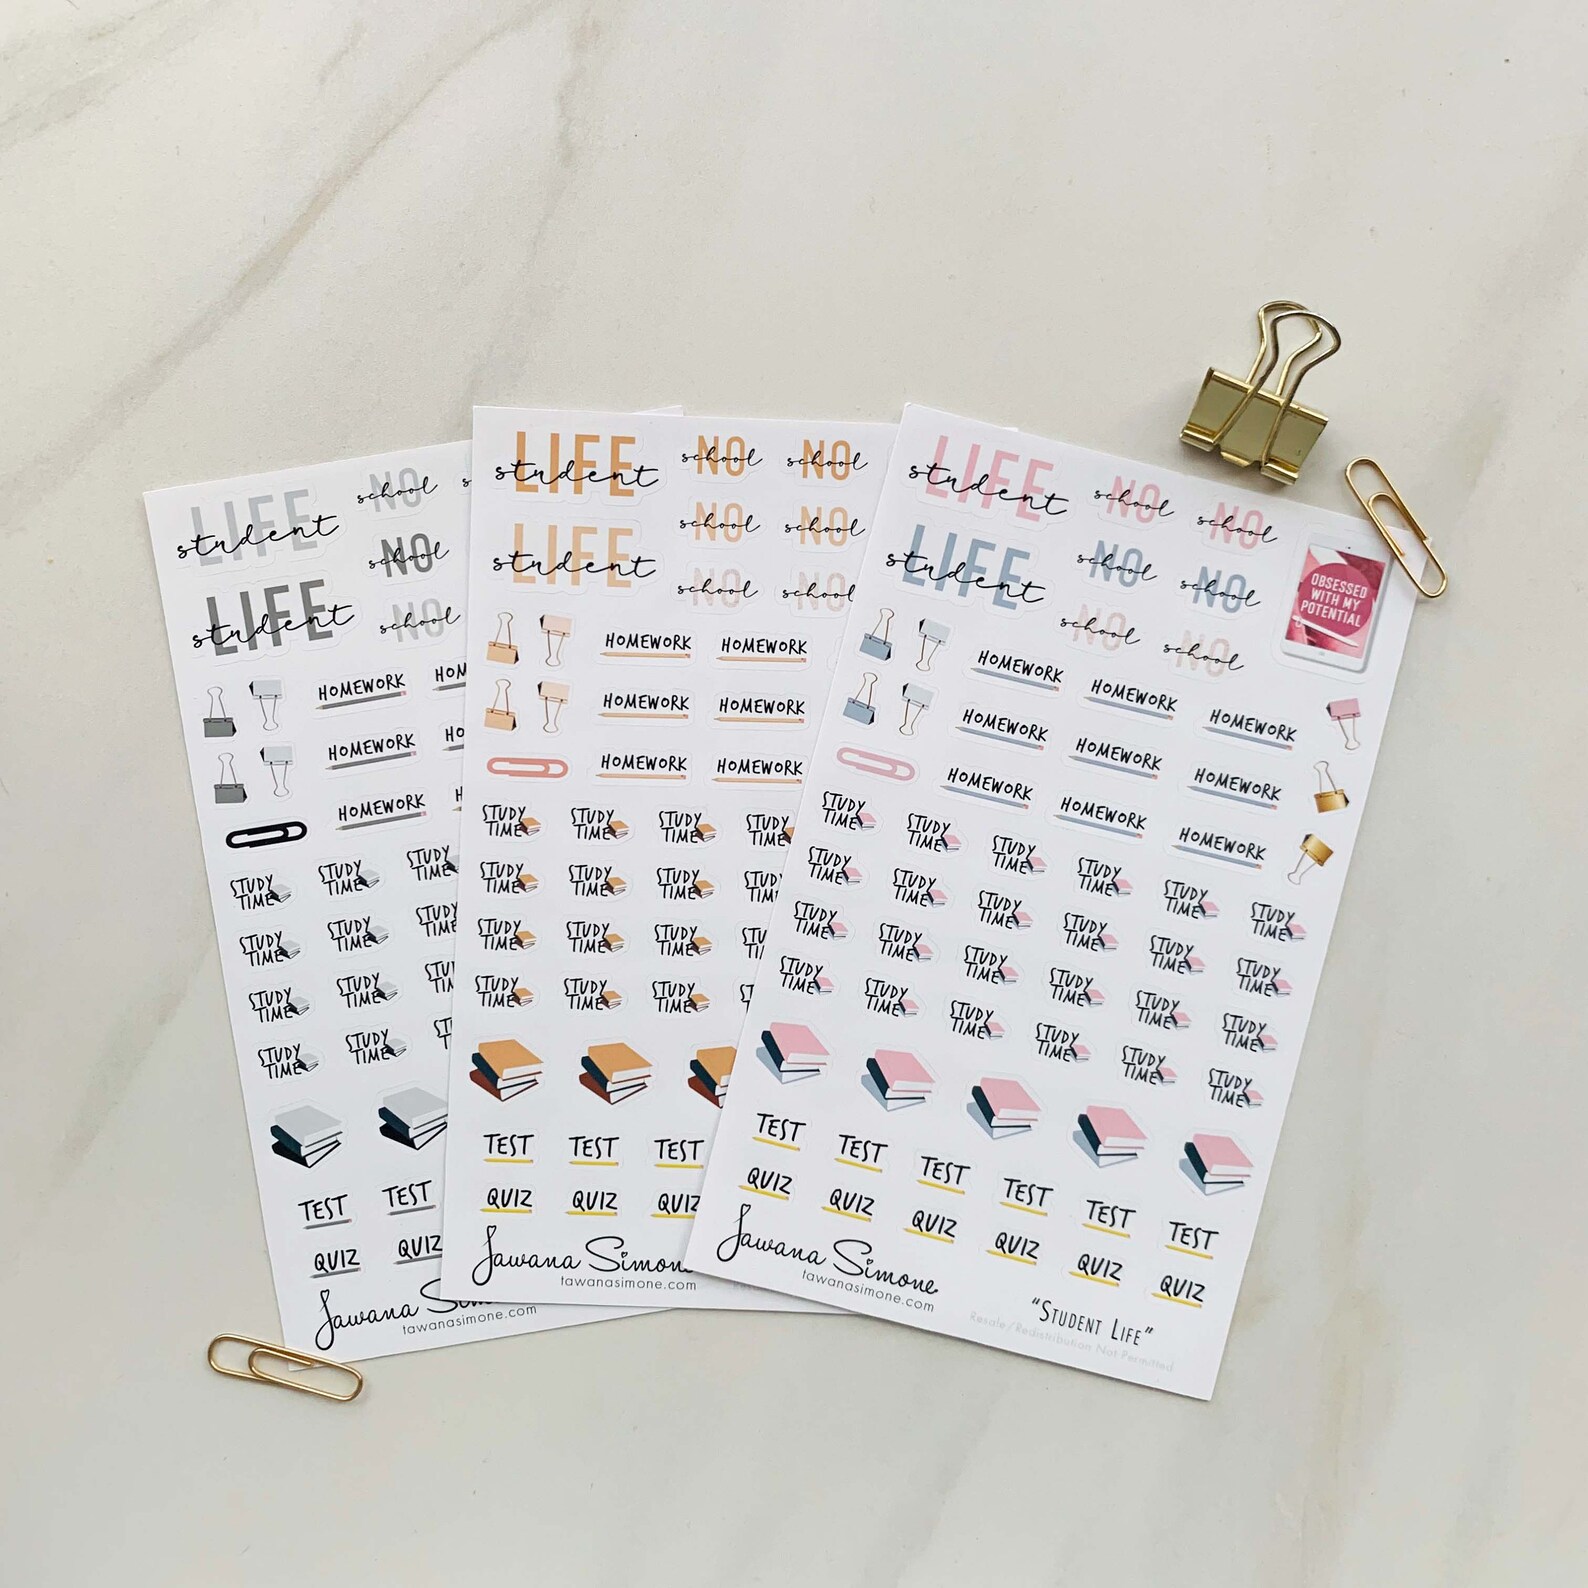 LIFE student
NO school
NO school
LIFE student
NO school
HOMEWORK
HOMEWORK
HOMEWORK
STUDY TIME STUDY TIME STUDY TIME
STUDY TIME STUDY TIME STUDY TIME
STUDY TIME STUDY TIME
STUDY TIME STUDY TIME
TEST TEST
QUIZ QUIZ
Tawana
tawanasimone.com
LIFE student NO school NO school
LIFE student NO school NO school
NO school NO school
HOMEWORK HOMEWORK
HOMEWORK HOMEWORK
HOMEWORK HOMEWORK
STUDY TIME STUDY TIME STUDY TIME STUDY TIME
STUDY TIME STUDY TIME STUDY TIME
STUDY TIME STUDY TIME STUDY TIME
STUDY TIME STUDY TIME STUDY TIME
TEST TEST TEST
QUIZ QUIZ QUIZ
Tawana Simone
tawanasimone.com
LIFE student NO school NO school
LIFE student NO school NO school
NO school NO school
OBSESSED
WITH MY
POTENTIAL
HOMEWORK HOMEWORK HOMEWORK
HOMEWORK HOMEWORK HOMEWORK
HOMEWORK HOMEWORK HOMEWORK
STUDY TIME STUDY TIME STUDY TIME STUDY TIME STUDY TIME STUDY TIME
STUDY TIME STUDY TIME STUDY TIME STUDY TIME STUDY TIME STUDY TIME
STUDY TIME STUDY TIME STUDY TIME STUDY TIME STUDY TIME STUDY TIME
STUDY TIME STUDY TIME STUDY TIME STUDY TIME STUDY TIME STUDY TIME
TEST TEST TEST TEST TEST TEST
QUIZ QUIZ QUIZ QUIZ QUIZ QUIZ
Tawana Simone
tawanasimone.com
"STUDENT LIFE"
Resale/Redistribution Not Permitted